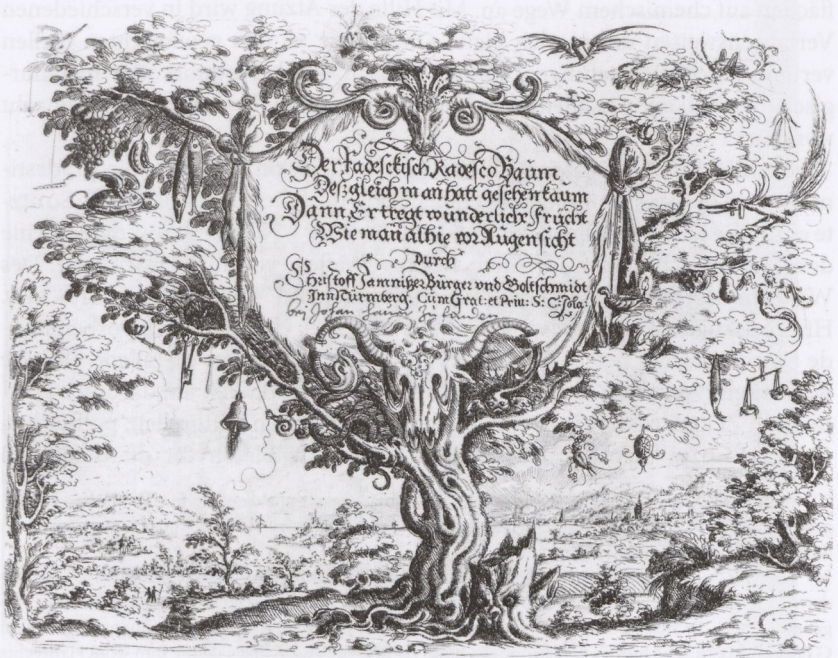 Der Radesckisch Radesco Baum
Deßgleich man hatt gesehen kaum
Dann Er tregt wunderliche Frücht
Wie man alhie vor Augen sicht
Durch
Christoff Jamnitzer Bürger vnd Goltschmidt
Inn Nürmberg. Cum Grat: et Priu: S: C:
bei Johan